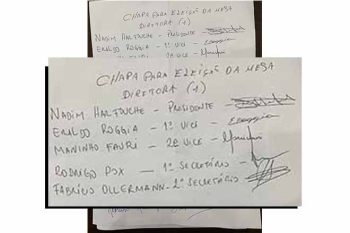 CHAPA PARA ELEIÇÃO DA MESA
DIRETORA (1)
NADIM HARFOUCHE - PRESIDENTE
ERALDO ROGGIA - 1º VICE
CHAPA PARA ELEIÇÃO DA MESA
DIRETORA (1)
NADIM HARFOUCHE - PRESIDENTE -
ERALDO ROGGIA - 1º VICE -
MANINHO FAURI - 2º VICE -
RODRIGO - 1º SECRETÁRIO -
FABRÍCIO OLLERMANN - 2º SECRETÁRIO